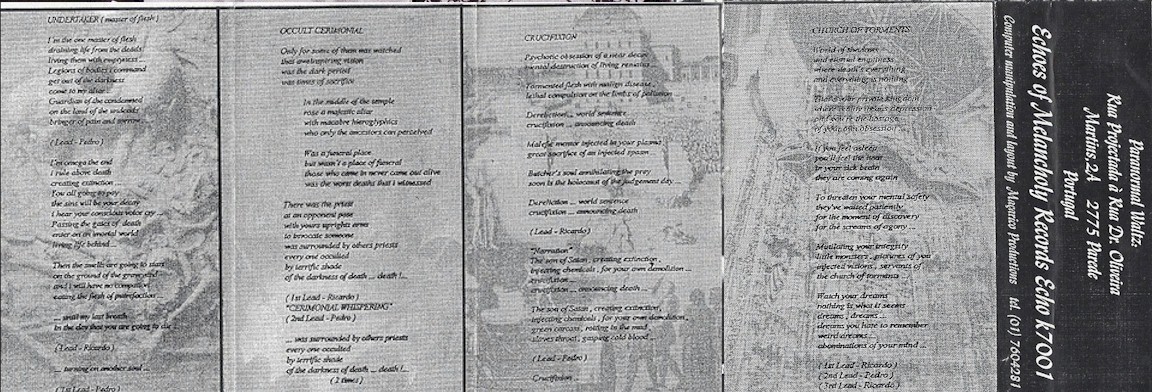 UNDERTAKER ( master of flesh )
I'm the one master of flesh
draining life from the deads
living them with emptyness
Legions of bodies command
get out of the darkness
come to my altar
Guardian of the condemned
on the land of the undeads
bringer of pain and sorrow
( Lead - Pedro )
I'm omega the end
I rule above death
creating extinction
You all going to pay
the sins will be your decay
I hear your conscious voice cry ...
Passing the gates of deads
enter on an imortal world
living life behind ...
Then the smells are going to start
on the ground of the graveyard
and i will have no compation
eating the flesh of putrefaction
... until my last breath
In the day that you are going to die
( Lead - Ricardo )
... turning on another soul ...
( 1st Lead - Pedro )
OCCULT CERIMONIAL
Only for some of them was watched
that awe inspiring vision
was the dark period
was times of sacrifice
In the middle of the temple
rose a majestic altar
with macabre hieroglyphics
who only the ancestors can perceived
Was a funeral place
but wasn't a place of funeral
those who came in never came out alive
was the worst deaths that i witnessed
There was the priest
at an opponent pose
with yours uprights arms
to invocate someone
was surrounded by others priests
every one occulted
by terrific shade
of the darkness of death ... death !...
( 1st Lead - Ricardo )
"CERIMONIAL WHISPERING"
( 2nd Lead - Pedro )
... was surrounded by others priests
every one occulted
by terrific shade
of the darkness of death ... death !...
( 2 times )
CRUCIFIXION
Psychotic obsession of a near decay
mental destruction of living remains
Tormented flesh with malign disease
lethal compulsion on the limbs of pollution
Dereliction ... world sentence
crucifixion ... announcing death
Malefic mentor injected in your plasma
great sacrifice of an injected spasm
Butcher's soul annihilating the prey
soon is the holocaust of the judgement day
Dereliction ... world sentence
crucifixion ... announcing death
( Lead - Ricardo )
"Narration"
The son of Satan , creating extinction ,
injecting chemicals , for your own demolition ...
crucifixion ...
crucifixion ... announcing death ...
The son of Satan , creating extinction ,
injecting chemicals , for your own demolition ,
green carcass , rotting in the mud ,
slaves throat , gasping cold blood ...
( Lead - Pedro )
Crucifixion ...
CHURCH OF TORMENTS
World of the loser
and eternal emptiness
where death's everything
and everything is nothing
That's your private kingdom
of your own obsession
If you feel asleep
you'll feel the fear
in your sick brain
they are coming again
To threaten your mental safety
they've waited patiently
for the moment of discovery
for the screams of agony ...
Mutilating your integrity
little monsters , pictures of you
injected visions , servants of
the church of torments ...
Watch your dreams
nothing is what it seems
dreams , dreams ...
dreams you hate to remember
weird dreams ...
abominations of your mind ...
( 1st Lead - Ricardo )
( 2nd Lead - Pedro )
( 3rd Lead - Ricardo )
Paranormal Waltz:
Rua Projectada à Rua Dr. Oliveira
Martins, 2A 2775 Parede
Portugal
Echoes of Melancholy Records Echo k7001
Computer manipulation and layout by Maçarico Productions tel. (01) 7604281